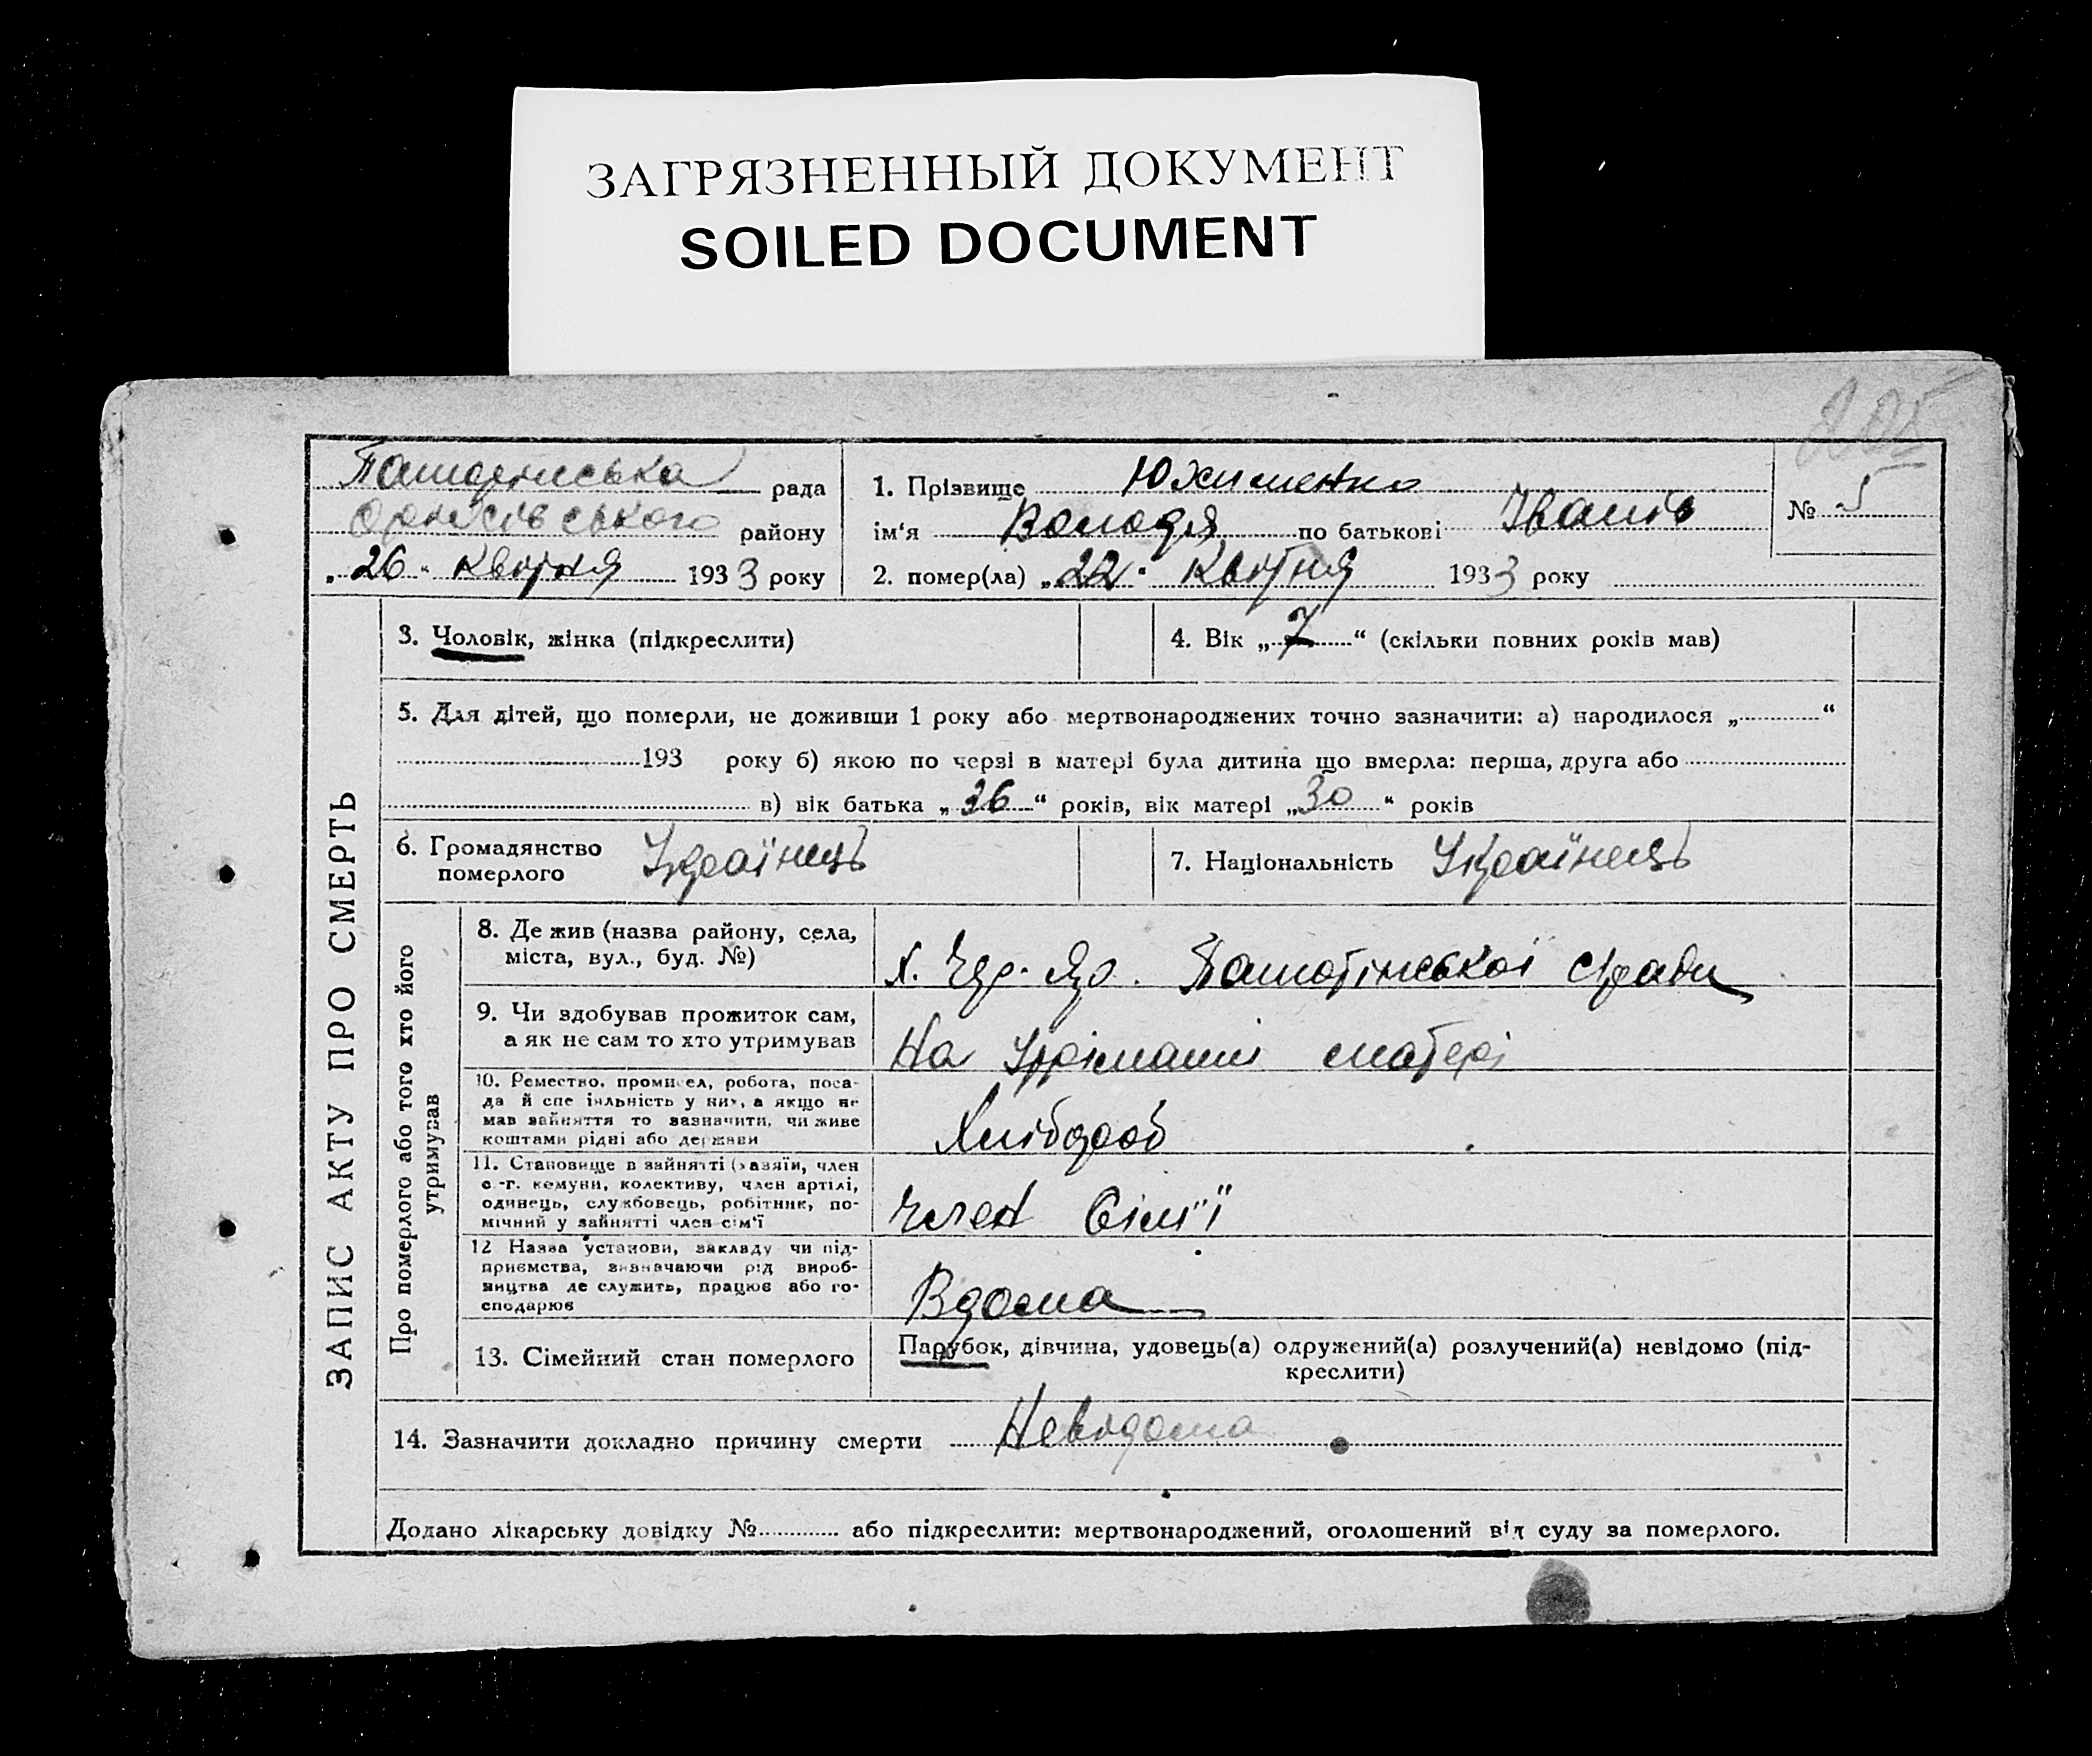 ЗАГРЯЗНЕННЫЙ ДОКУМЕНТ
SOILED DOCUMENT
205
рада
району
„26“ квітня 1933 року
1. Прізвище Юхименко
ім'я Володя по батькові Іванів
№ 5
2. помер(ла) „22“ Квітня 1933 року
ЗАПИС АКТУ ПРО СМЕРТЬ
3. Чоловік, жінка (підкреслити)
4. Вік „7“ (скільки повних років мав)
5. Для дітей, що померли, не доживши 1 року або мертвонароджених точно зазначити: а) народилося „ “
193 року б) якою по черзі в матері була дитина що вмерла: перша, друга або
в) вік батька „36“ років, вік матері „30“ років
6. Громадянство померлого Українець
7. Національність Українець
Про померлого або того хто його утримував
8. Де жив (назва району, села,
міста, вул., буд. №)
х. Яр.
9. Чи здобував прожиток сам,
а як не сам то хто утримував
На утріманні матері
10. Ремество, промисел, робота, поса-
да й спеціяльність у них, а якщо не
мав зайняття то зазначити, чи живе
коштами рідні або держави
Хлібороб
11. Становище в зайнятті (хазяїн, член
с.-г. комуни, колективу, член артілі,
одинець, службовець, робітник, по-
мічний у зайнятті член сім'ї
Член Сім"ї
12 Назва установи, закладу чи під-
приємства, зазначаючи рід вироб-
ництва де служить, працює або го-
сподарює
Вдома
13. Сімейний стан померлого
Парубок, дівчина, удовець(а) одружений(а) розлучений(а) невідомо (під-
креслити)
14. Зазначити докладно причину смерти Невідома
Додано лікарську довідку № або підкреслити: мертвонароджений, оголошений від суду за померлого.